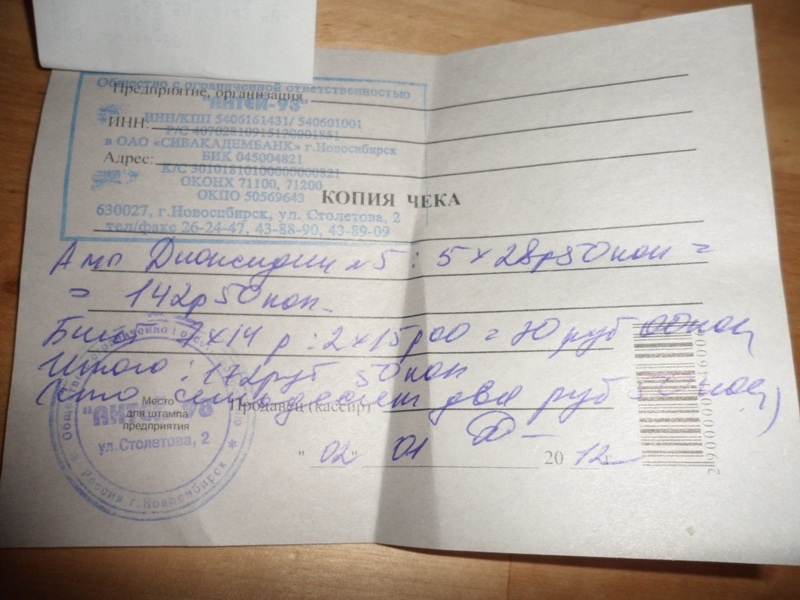 Общество с ограниченной ответственностью
Предприятие, организация
"АНТЕЙ-93"
ИНН:
ИНН/КПП 5406161431/ 540601001
Р/С 40702810915120001851
в ОАО «СИБАКАДЕМБАНК» г.Новосибирск
БИК 045004821
Адрес:
К/С 30101810100000000821
ОКОНХ 71100, 71200
ОКПО 50569643
КОПИЯ ЧЕКА
630027, г.Новосибирск, ул. Столетова, 2
тел/факс 26-24-47, 43-88-90, 43-89-09
Амп Диоксидин №5 : 5 х 28р50коп =
= 142р 50коп
7х14 : 2х15р00 = 30 руб 00коп
Итого : 172руб 50коп
(сто семьдесят два руб 50коп)
Место
для штампа
предприятия
Продавец (кассир)
ул.Столетова, 2
Россия г.Новосибирск
" 02 " 01 20 12 г.